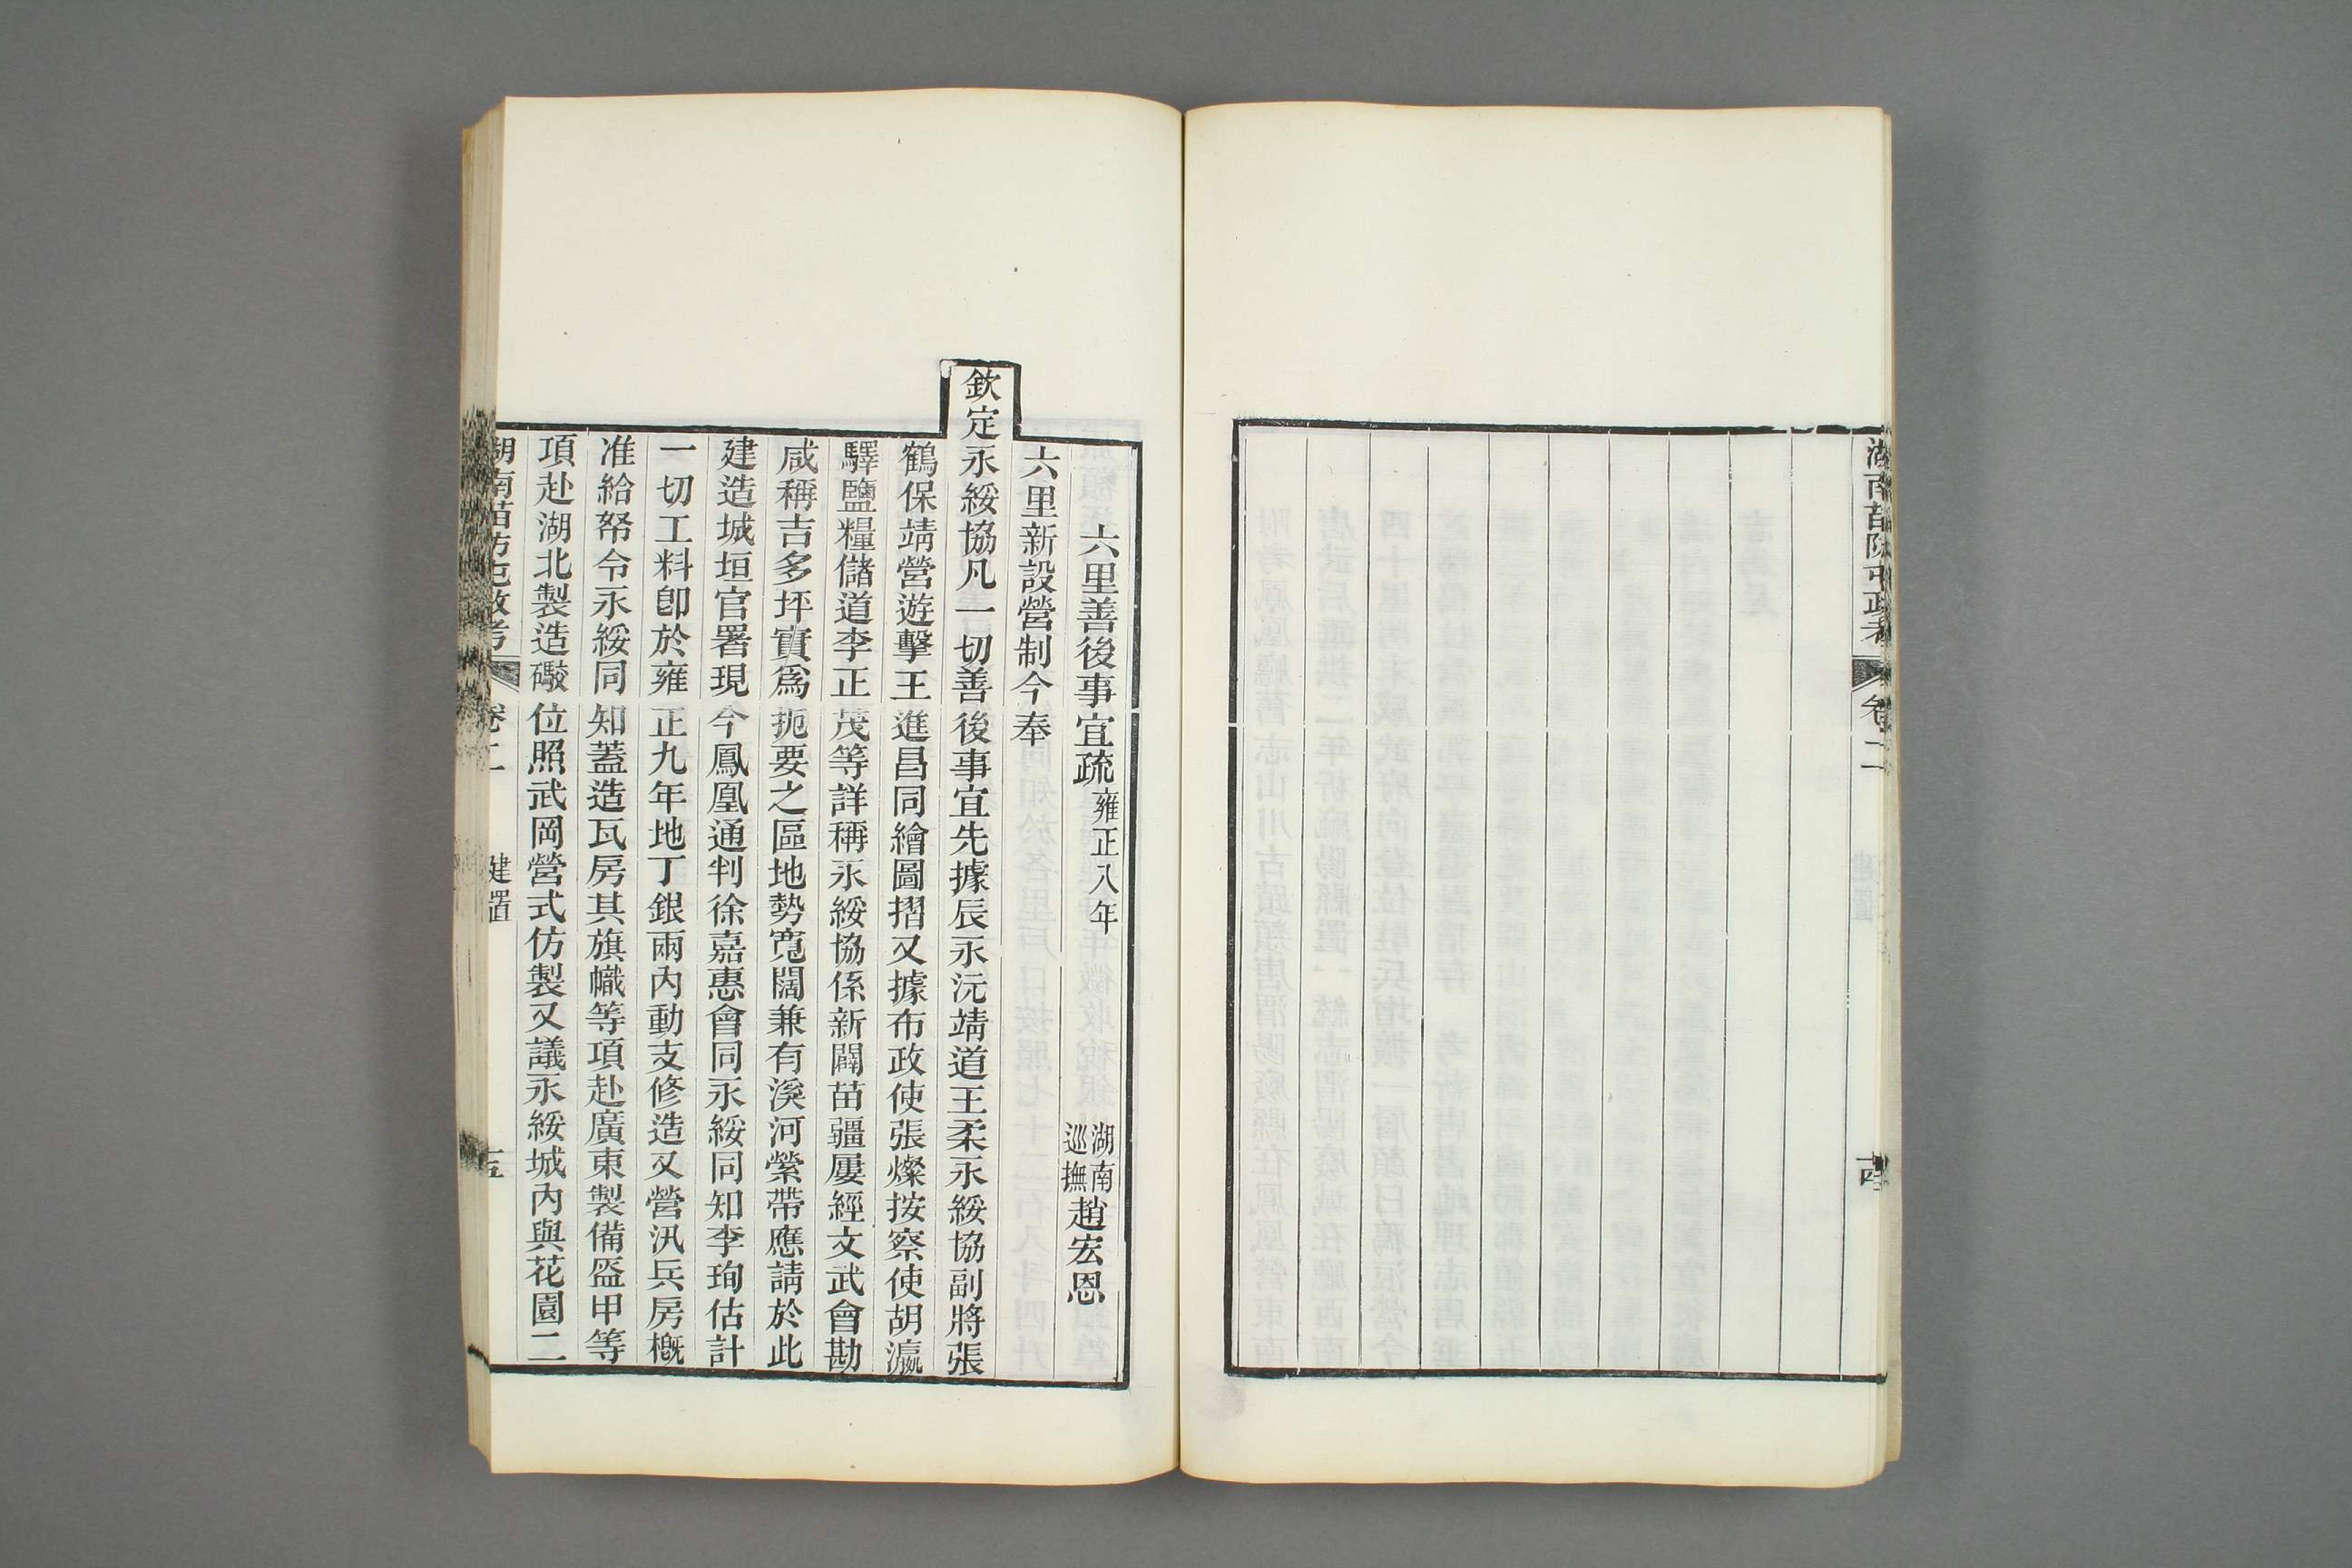 湖南苗防屯政考 卷二 十四
六里善後事宜疏 雍正八年 湖南巡撫趙宏恩
六里新設營制今奉
欽定永綏協凡一切善後事宜先據辰永沅靖道王柔永綏協副將張
鶴保靖營遊擊王進昌同繪圖摺又據布政使張燦按察使胡瀛
驛鹽糧儲道李正茂等詳稱永綏協係新闢苗疆屢經文武會勘
咸稱吉多坪實爲扼要之區地勢寬闊兼有溪河縈帶應請於此
建造城垣官署現今鳳凰通判徐嘉惠會同永綏同知李珣估計
一切工料卽於雍正九年地丁銀兩內動支修造又營汛兵房概
准給帑令永綏同知蓋造瓦房其旗幟等項赴廣東製備盔甲等
項赴湖北製造礮位照武岡營式仿製又議永綏城內與花園二
湖南苗防屯政考 卷二 建置 十五